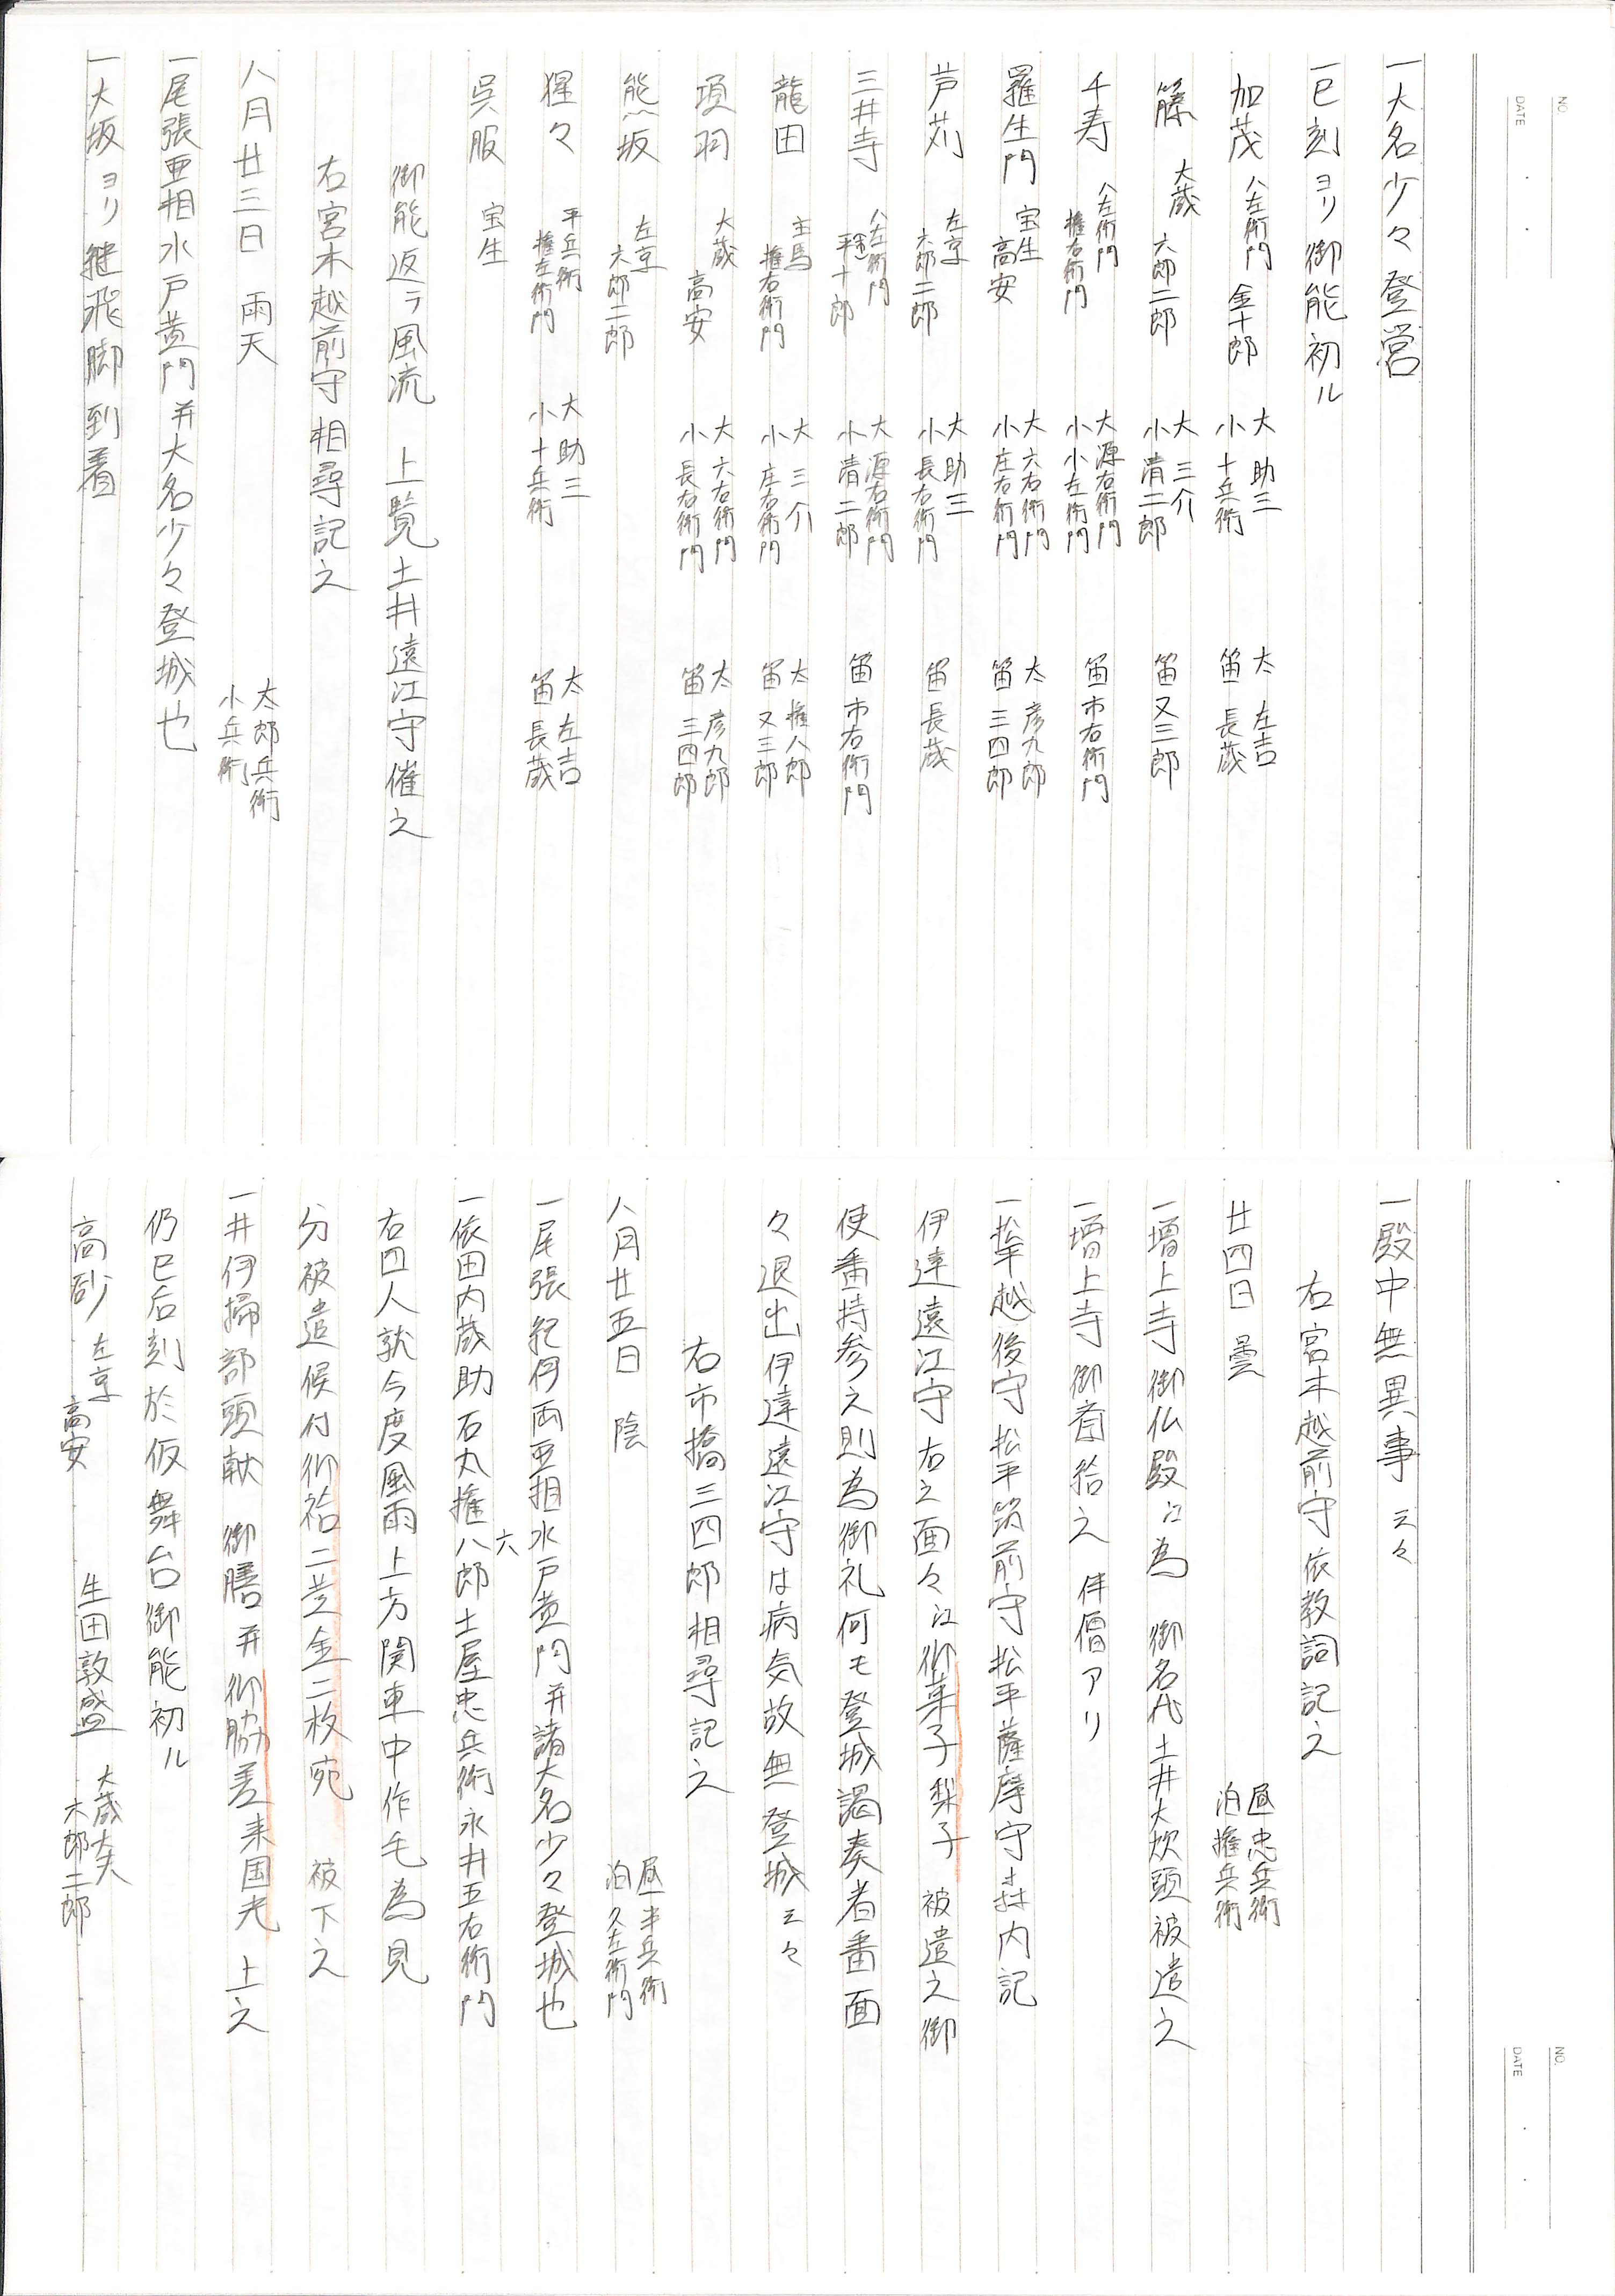 NO.
DATE
一大名少々登営
一巳刻ヨリ御能初ル
加茂 八左衛門 金十郎 大 助三 小 十兵衛 太 左吉 笛 長蔵
籐 大蔵 六郎二郎 大 三介 小 清二郎 笛 又三郎
千寿 八左衛門 権右衛門 大 源右衛門 小 小左衛門 笛 市右衛門
羅生門 宝生 高安 大 六右衛門 小 庄右衛門 太 彦九郎 笛 三四郎
芦苅 左京 六郎二郎 大 助三 小 長右衛門 笛 長蔵
三井寺 八左衛門 平十郎 大 源右衛門 小 清二郎 笛 市右衛門
龍田 主馬 権右衛門 大 三介 小 庄右衛門 太 権八郎 笛 又三郎
項羽 大蔵 高安 大 六右衛門 小 長右衛門 太 彦九郎 笛 三四郎
熊坂 左京 六郎二郎
猩々 平兵衛 権左衛門 大 助三 小 十兵衛 太 左吉 笛 長蔵
呉服 宝生
御能返ラ風流 上覧土井遠江守催之
右宮木越前守相尋記之
八月廿三日 雨天 太郎兵衛 小兵衛
一尾張亜相水戸黄門并大名少々登城也
一大坂ヨリ継飛脚到着
NO.
DATE
一殿中無異事云々
右宮木越前守依教詞記之
廿四日 曇 昼 忠兵衛 泊 権兵衛
一増上寺御仏殿江為 御名代土井大炊頭被遣之
一増上寺御斎給之 伴僧アリ
一松平越後守松平筑前守松平薩摩守森内記
伊達遠江守右之面々江御菓子梨子 被遣之御
使番持参之則為御礼何モ登城謁奏者番面
々退出伊達遠江守は病気故無登城云々
右市橋三四郎相尋記之
八月廿五日 陰 昼 半兵衛 泊 久左衛門
一尾張紀伊両亜相水戸黄門并諸大名少々登城也
一依田内蔵助石丸権八郎土屋忠兵衛永井五右衛門
六
右四人就今度風雨上方関東中作毛為見
分被遣候付御袷二並金二枚宛 被下之
一井伊掃部頭献 御膳并御脇差来国光 上之
仍巳后刻於仮舞台御能初ル
高砂 左京 高安 生田敦盛 大蔵大夫 六郎二郎